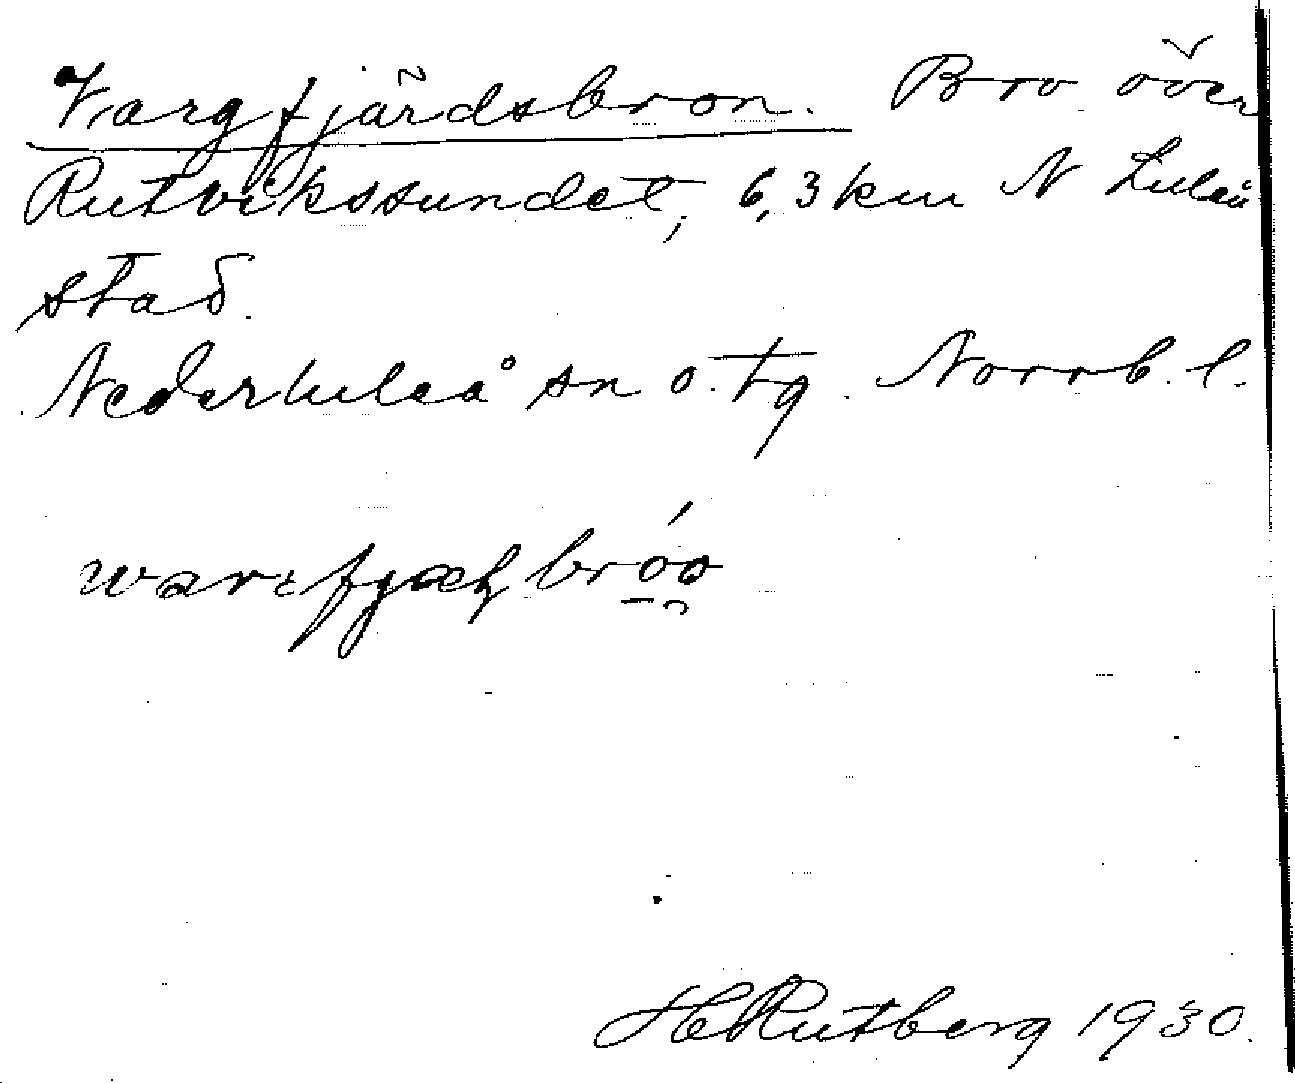 Vargfjärdsbron. Bro över
Rutvikssundet, 6,3 km N Luleå
stad.
Nederluleå sn o. tg. Norrb. l.
H Rutberg 1930.